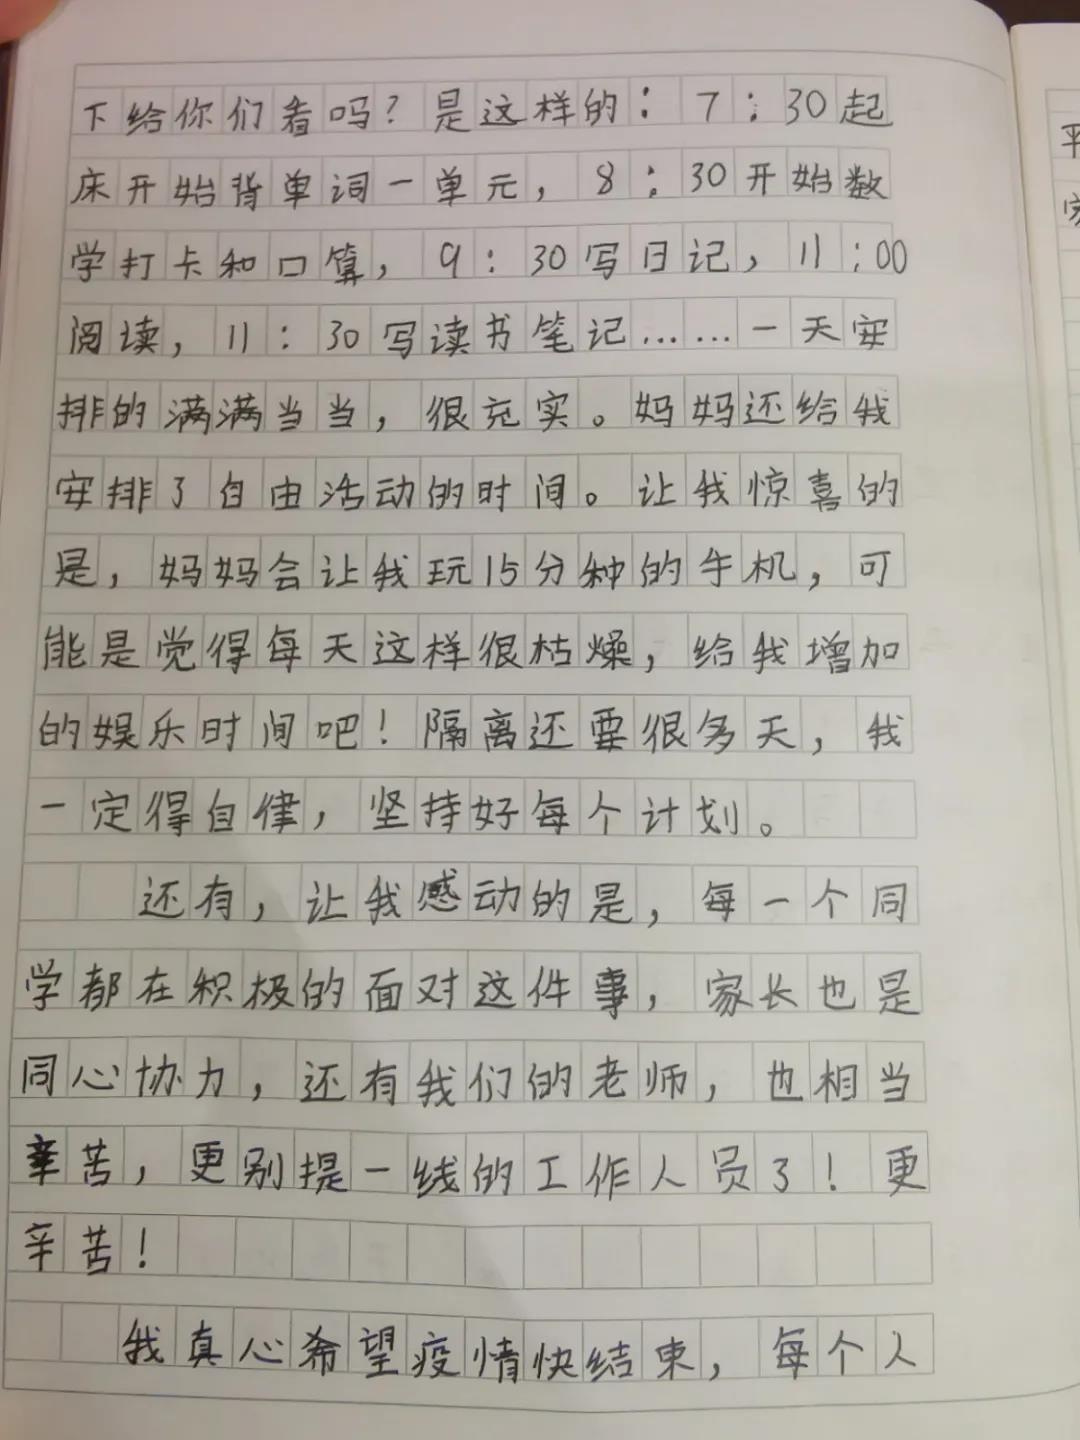 下给你们看吗？是这样的：7：30起
床开始背单词一单元，8：30开始数
学打卡和口算，9：30写日记，11：00
阅读，11：30写读书笔记……一天安
排的满满当当，很充实。妈妈还给我
安排了自由活动的时间。让我惊喜的
是，妈妈会让我玩15分种的手机，可
能是觉得每天这样很枯燥，给我增加
的娱乐时间吧！隔离还要很多天，我
一定得自律，坚持好每个计划。
还有，让我感动的是，每一个同
学都在积极的面对这件事，家长也是
同心协力，还有我们的老师，也相当
辛苦，更别提一线的工作人员了！更
辛苦！
我真心希望疫情快结束，每个人
平